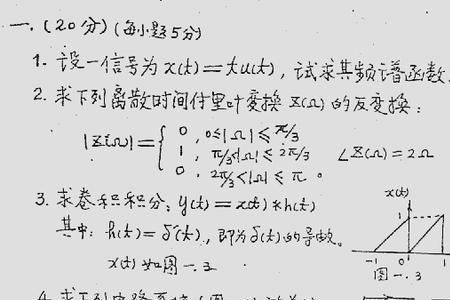 一.(20分)(每小题5分)
1. 设一信号为 x(t)=tu(t), 试求其频谱函数.
2. 求下列离散时间付里叶变换 X(Ω) 的反变换:
|X(Ω)|={ 0, 0≤|Ω|≤π/3
1, π/3<|Ω|≤2π/3 ∠X(Ω)=2Ω
0, 2π/3<|Ω|≤π 。
3. 求卷积积分: y(t)=x(t)*h(t)
其中: h(t)=δ'(t), 即为δ(t)的导数。
x(t) 如图一.3
x(t)
1
-1 0 1
图一.3
4. 求下列